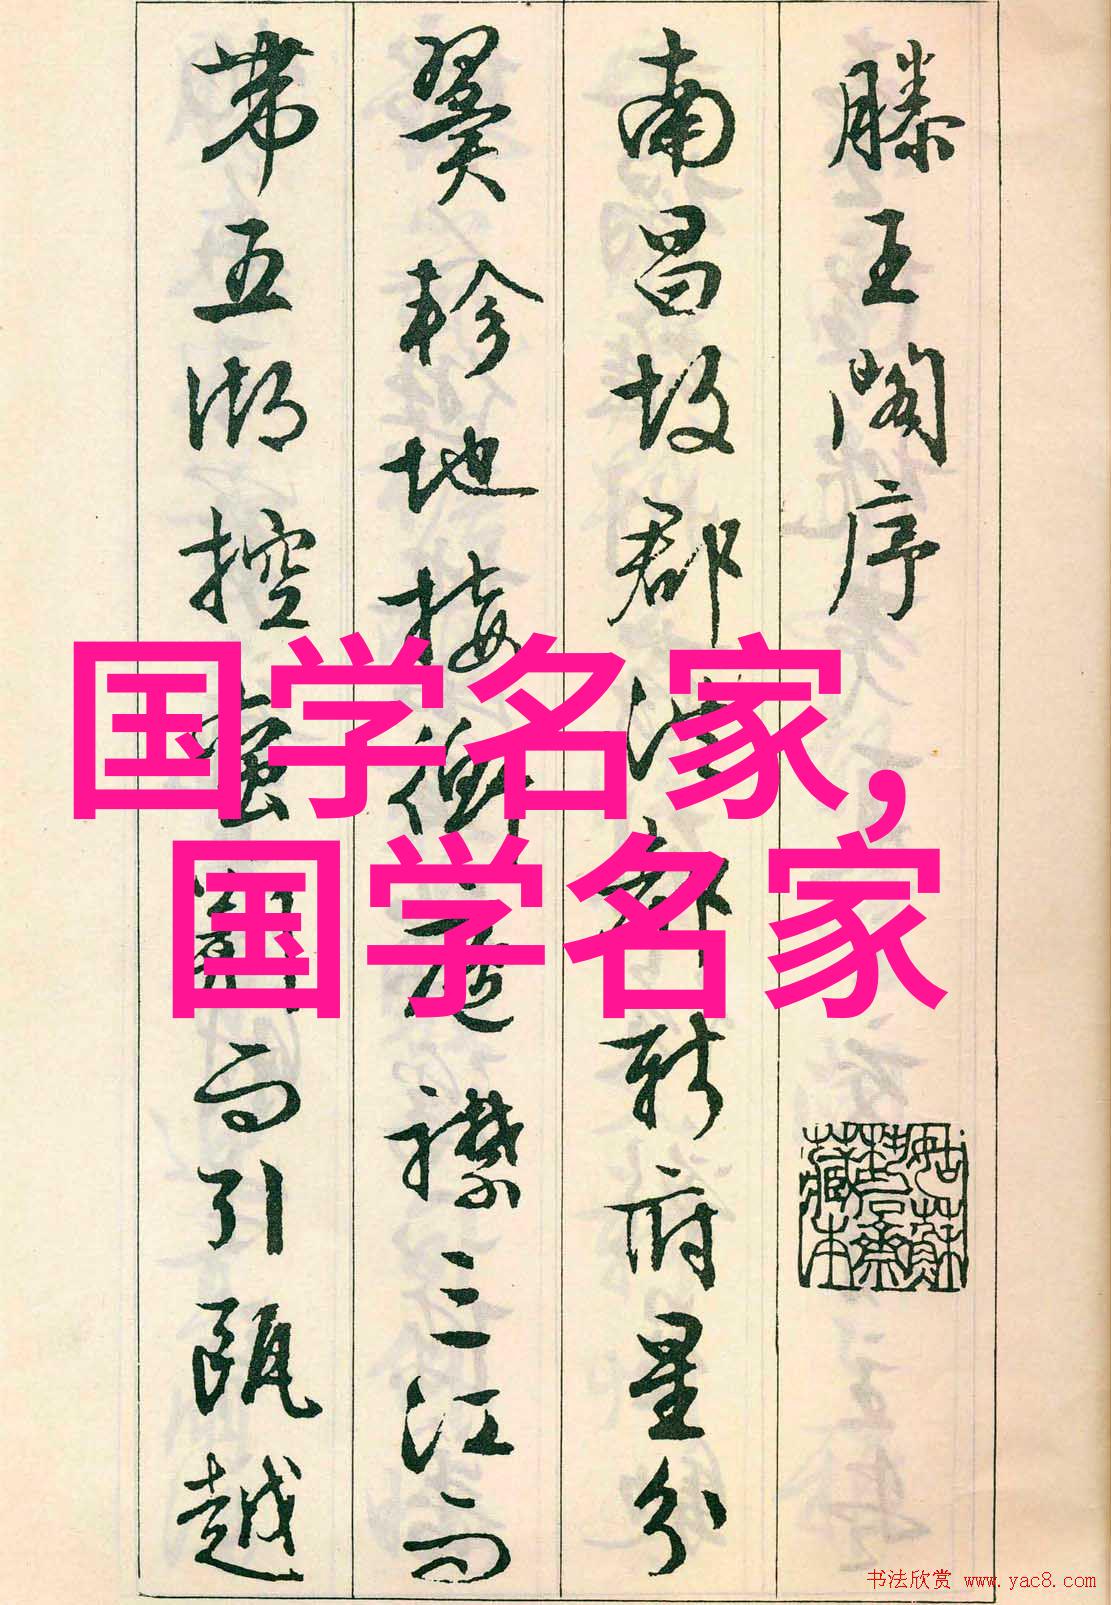 滕王閣序
南昌故郡洪都新府星分
翼軫地接衡廬襟三江而
帶五湖控蠻荊而引甌越
国学名家，
国学名家
书法欣赏 www.yac8.com